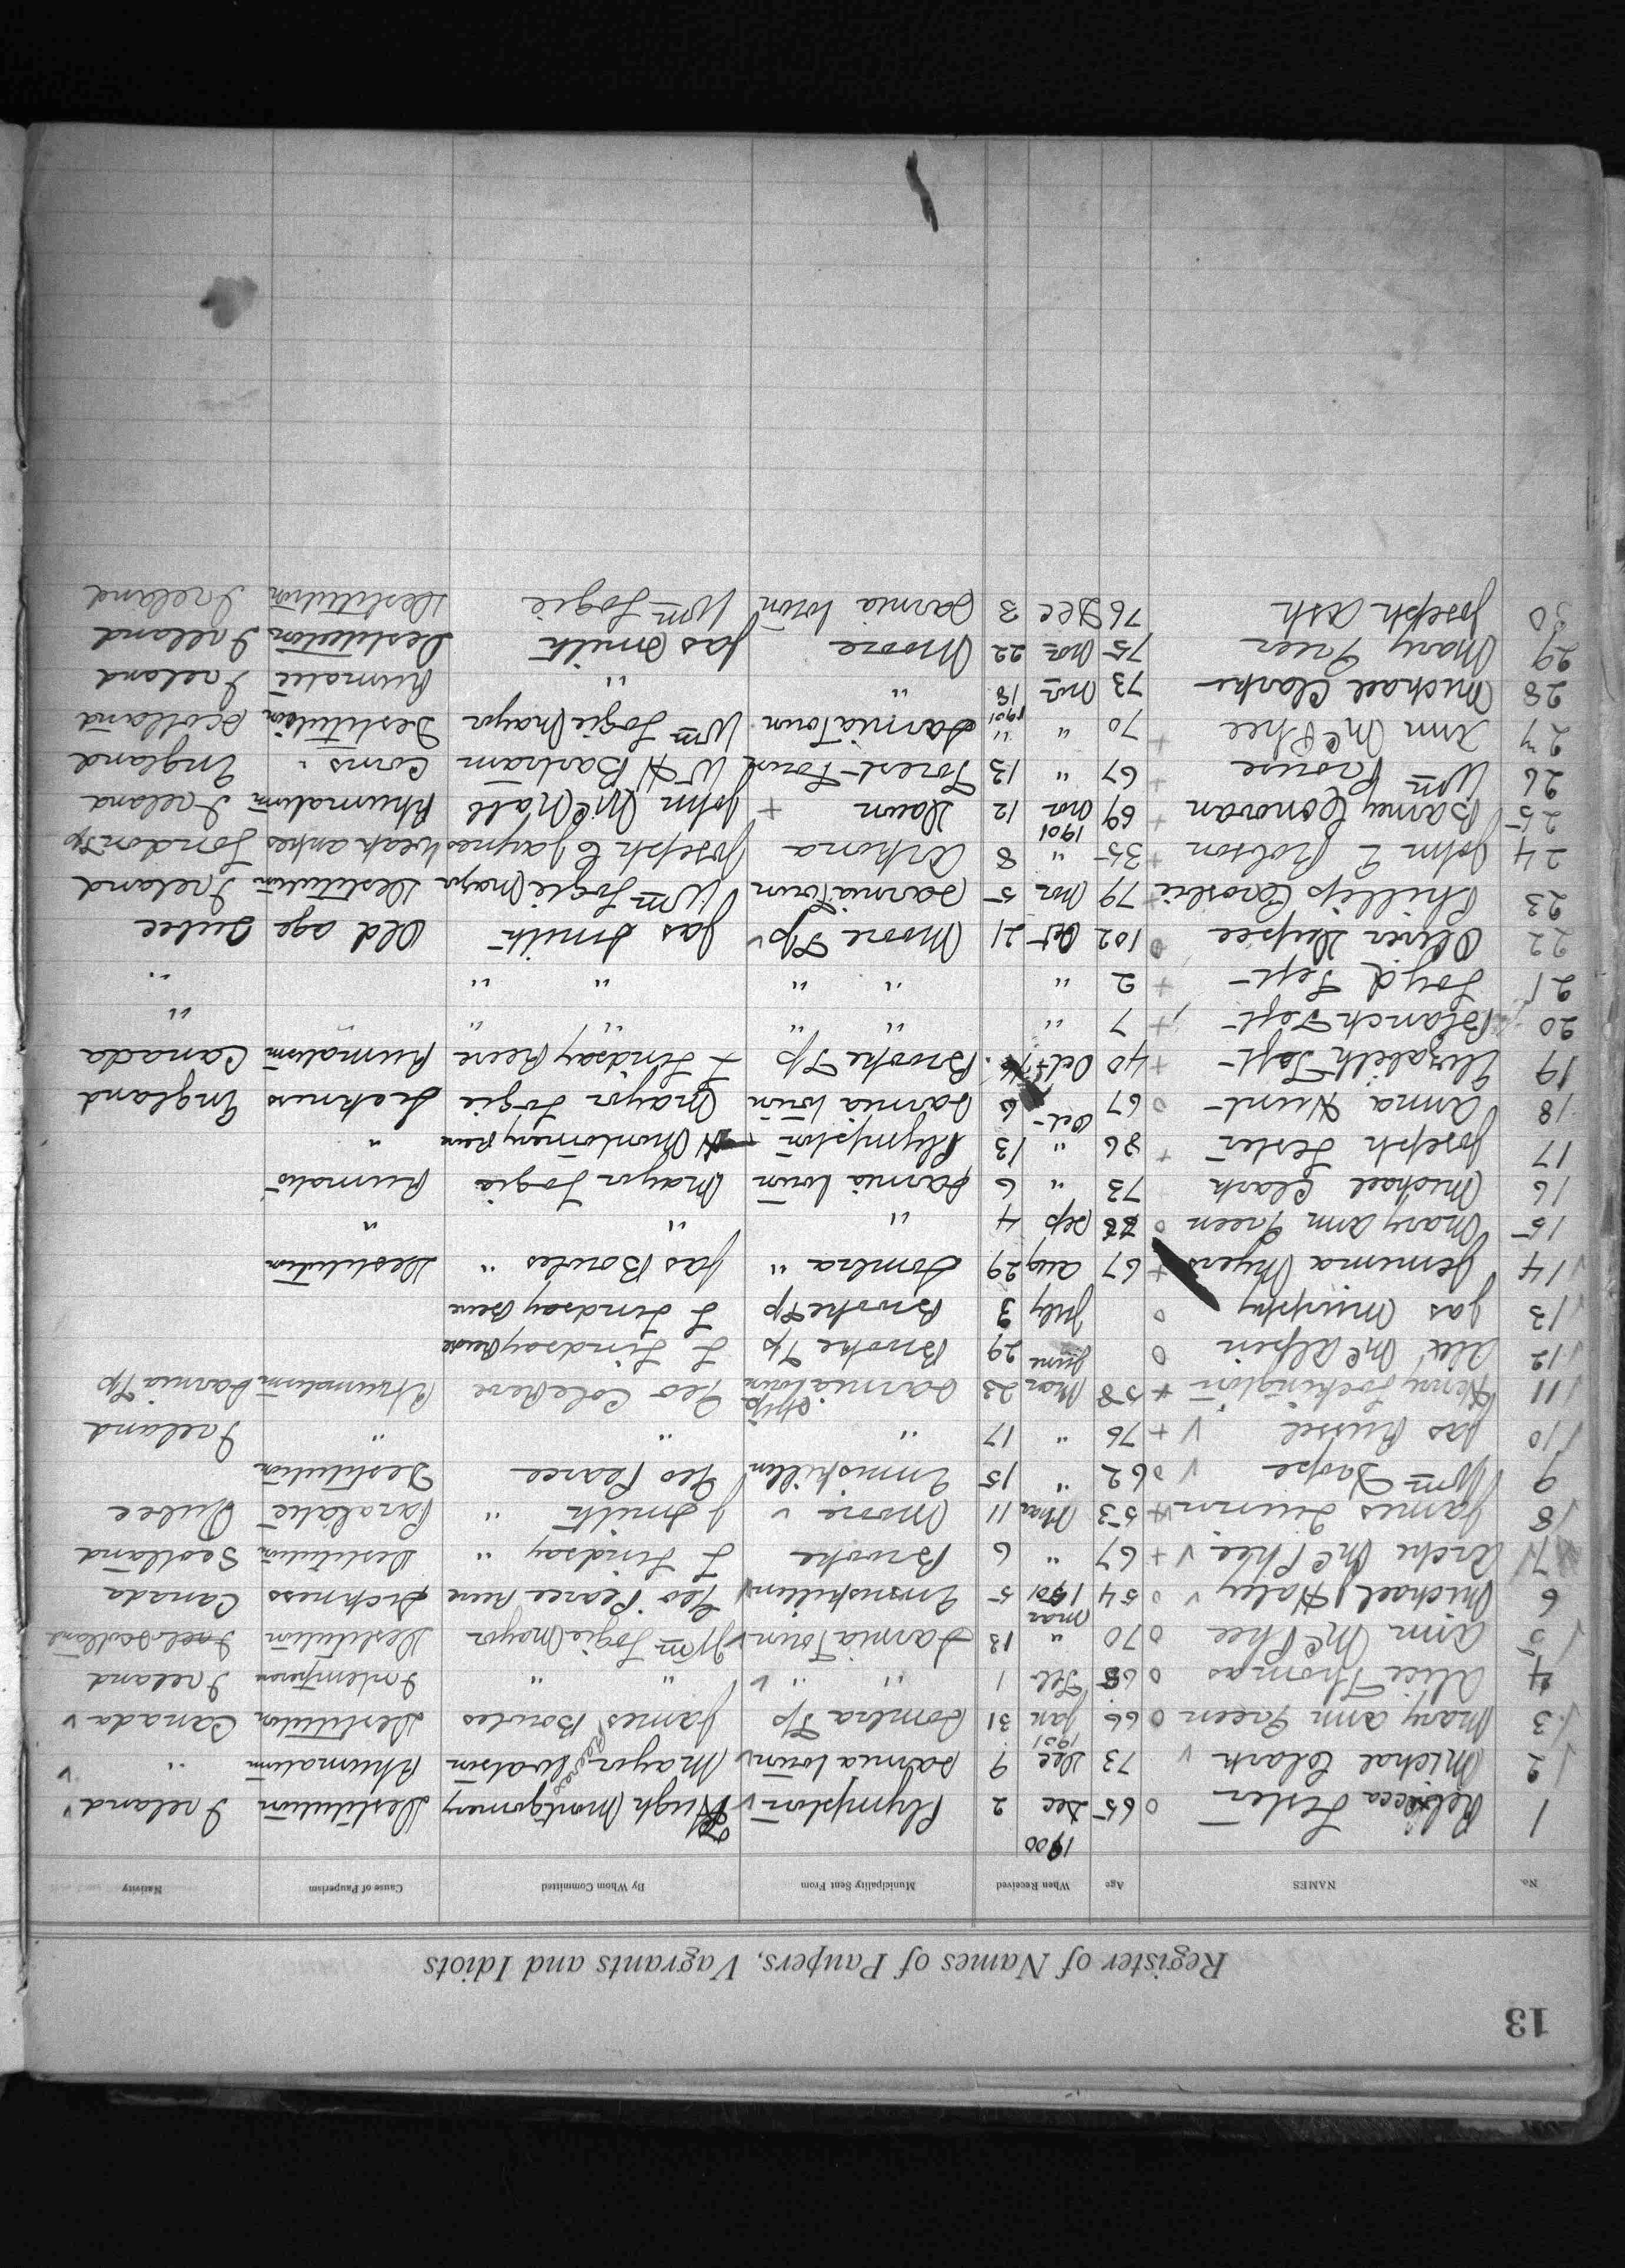 13
Register of Names of Paupers, Vagrants and Idiots
No. NAMES Age When Received Municipality Sent From By Whom Committed Cause of Pauperism Nativity
1900
1 Rebecca Lester o 65 Dec 2 Plympton v Hugh Montgomery Destitution Ireland v
2 Michal Clark v 73 Dec 9 Sarnia town v Mayor Watson Rhumatism " v
1901
3 Mary Ann Green o 66 Jan 31 Sombra Tp James Bowles Destitution Canada v
4 Alice Thomas o 68 Feb 1 " " v " " Ireland
5 Ann McPhee o 70 " 13 Sarnia Town v Wm Logie Mayor Destitution Scotland
6 Michael Haley v o 54 Mar 1901 5 Enniskillen v Geo Pearce Reeve Sickness Canada
7 Archi McPhee v + 67 " 6 Brooke L Lindsay " Destitution Scotland
8 James Quinn v + 53 Mar 11 Moore v J Smith " Paralatic Qubec
9 Wm v o 62 " 15 Enniskillen Geo Pearce Destitution
10 Jas Russel v + 76 " 17 " " " Ireland
11 Henry Lockington + 58 Mar 23 Sarnia town Geo Cole Reeve Rhumatism Sarnia Tp
12 Alex McAlpin o June 29 Brooke Tp L Lindsay Reeve
13 Jas Murphy o July 3 Brooke Tp L Lindsay Reeve
14 Jemima Myers + 67 Aug 29 Sombra " Jas Bowles " Destitution
15 Mary Ann Green o Sep 4 " " "
16 Michael Clark 73 " 6 Sarnia town Mayor Logie Rumatis
17 Joseph Lester + 86 " 13 Plympton H Montomery Reeve "
18 Anna Hunt o 67 Oct 6 Sarnia town Mayor Logie Sickness England
19 Elizabeth Taft + 40 Oct Brooke Tp L Lindsay Reeve Rumatism Canada
20 Blanch Teft + 7 " " " " " "
21 Loyd Teft + 2 " " " " " "
22 Oliver Dupee o 102 Oct 21 Moore Tp v Jas Smith Old age Qubec
23 Phillip Croslie + 79 Nov 5 Sarnia Town Wm Logie Mayor Destitution Ireland
24 John E Robson + 35 " 8 Arkona Joseph E Jaynes Weak ankes London Tp
1901
25 Barney Conovan + 69 Nov 12 Dawn + John McNall Rhumatism Ireland
26 Wm Prouse + 67 " 13 Forest Town W H Bartram Corns England
27 Ann McPhee + 70 " " Sarnia Town Wm Logie Mayor Destitution Scotland
1901
28 Michael Clarke 73 Nov 18 " " Rumatic Ireland
29 Mary Greer 75 Nov 22 Moore Jas Smith Destitution Ireland
30 Joseph Ash 76 Dec 3 Sarnia town Wm Logie Destitution Ireland